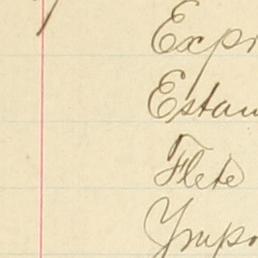 Expr
Estam
Flete
Impo